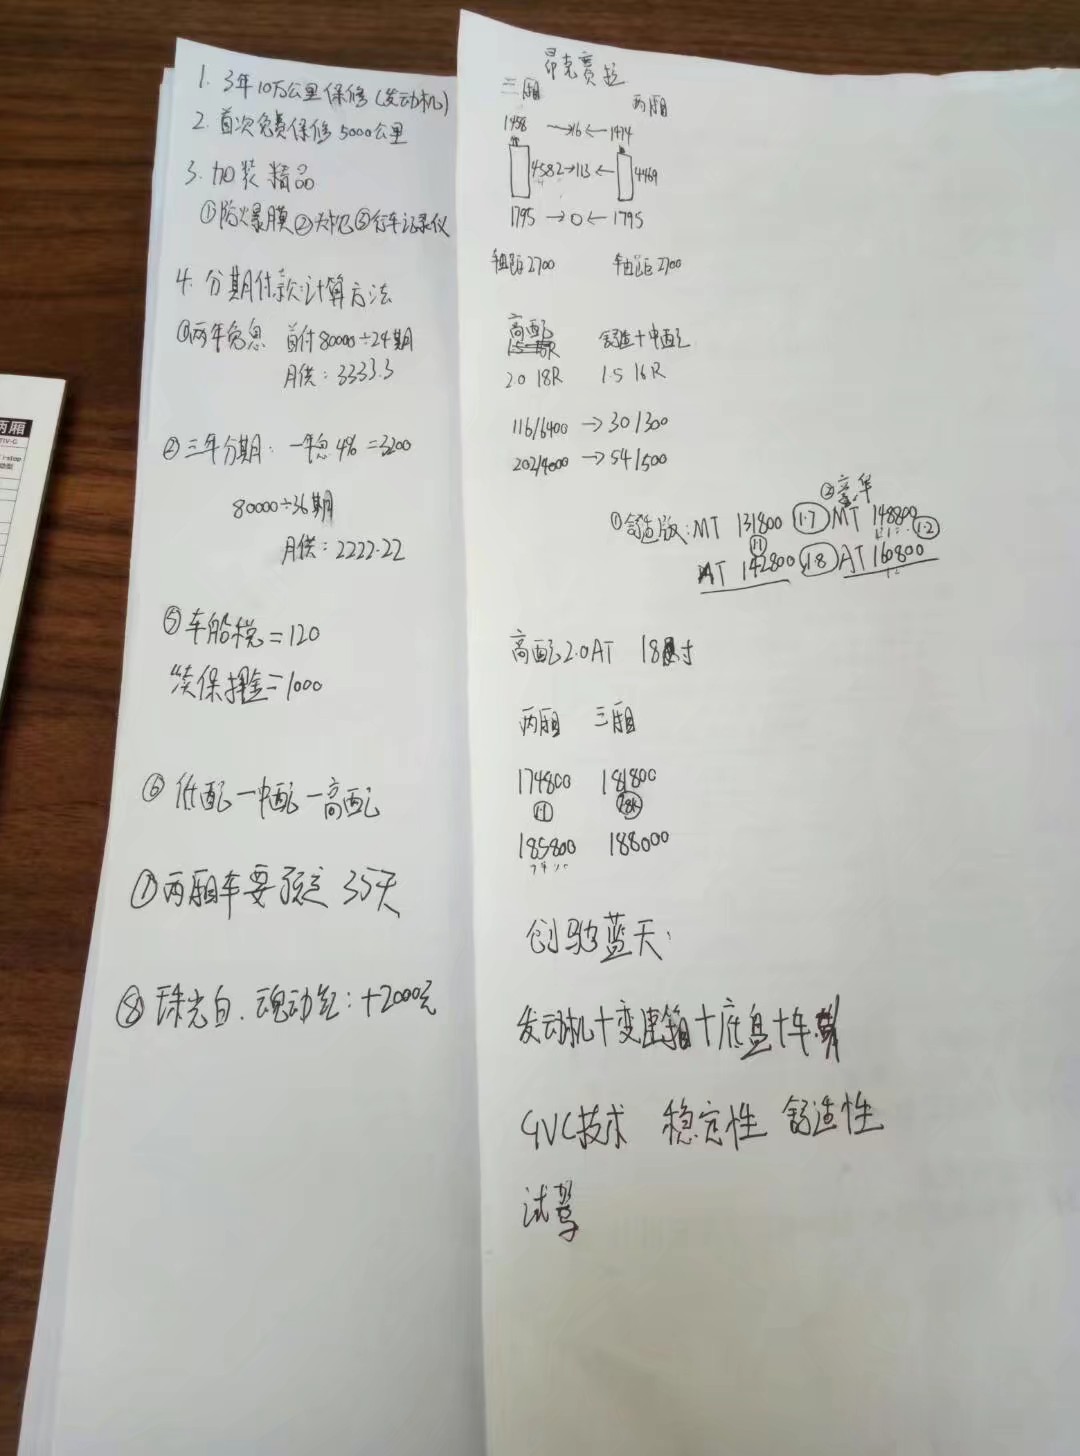 两厢
1. 3年10万公里保修(发动机)
2. 首次免费保修 5000公里
3. 加装精品
①防爆膜②大包③行车记录仪
4. 分期付款计算方法
①两年免息 首付80000÷24期
月供:3333.3
②三年分期: 一年息 4% =3200
80000÷36期
月供:2222.22
⑤车船税=120
续保押金=1000
⑥ 低配一中配一高配
⑦两厢车要预定 35天
⑧ 珠光白、魂动红:+2000元
昂克赛拉
三厢 两厢
1458 →16← 1474
4582→113← 4469
1795 →0← 1795
轴距2700 轴距2700
高配 舒适+中配
2.0 18R 1.5 16R
116/6400 → 30/300
202/4000 → 54/500
②豪华
①舒适版:MT 131800 1.7 MT 148800
1.1 1.2
AT 142800 1.8 AT 160800
高配2.0AT 18寸
两厢 三厢
174800 181800
1.1
185800 188000
创驰蓝天:
发动机+变速箱+底盘+车身
GVC技术 稳定性 舒适性
试驾